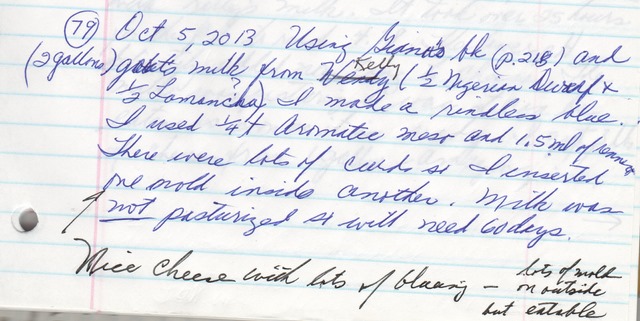 (79) Oct 5, 2013 Using Giana's bk (p.218) and
(2 gallons) goats milk from Kelly (1/2 Nigerian Dwarf &
1/2 Lamancha?) I made a rindless blue.
I used 1/4 t Aromatic meso and 1.5 ml of rennet
There were lots of curds so I inserted
one mold inside another. Milk was
not pasturized so will need 60 days.
Nice cheese with lots of blueing – lots of mold
on outside
but eatable